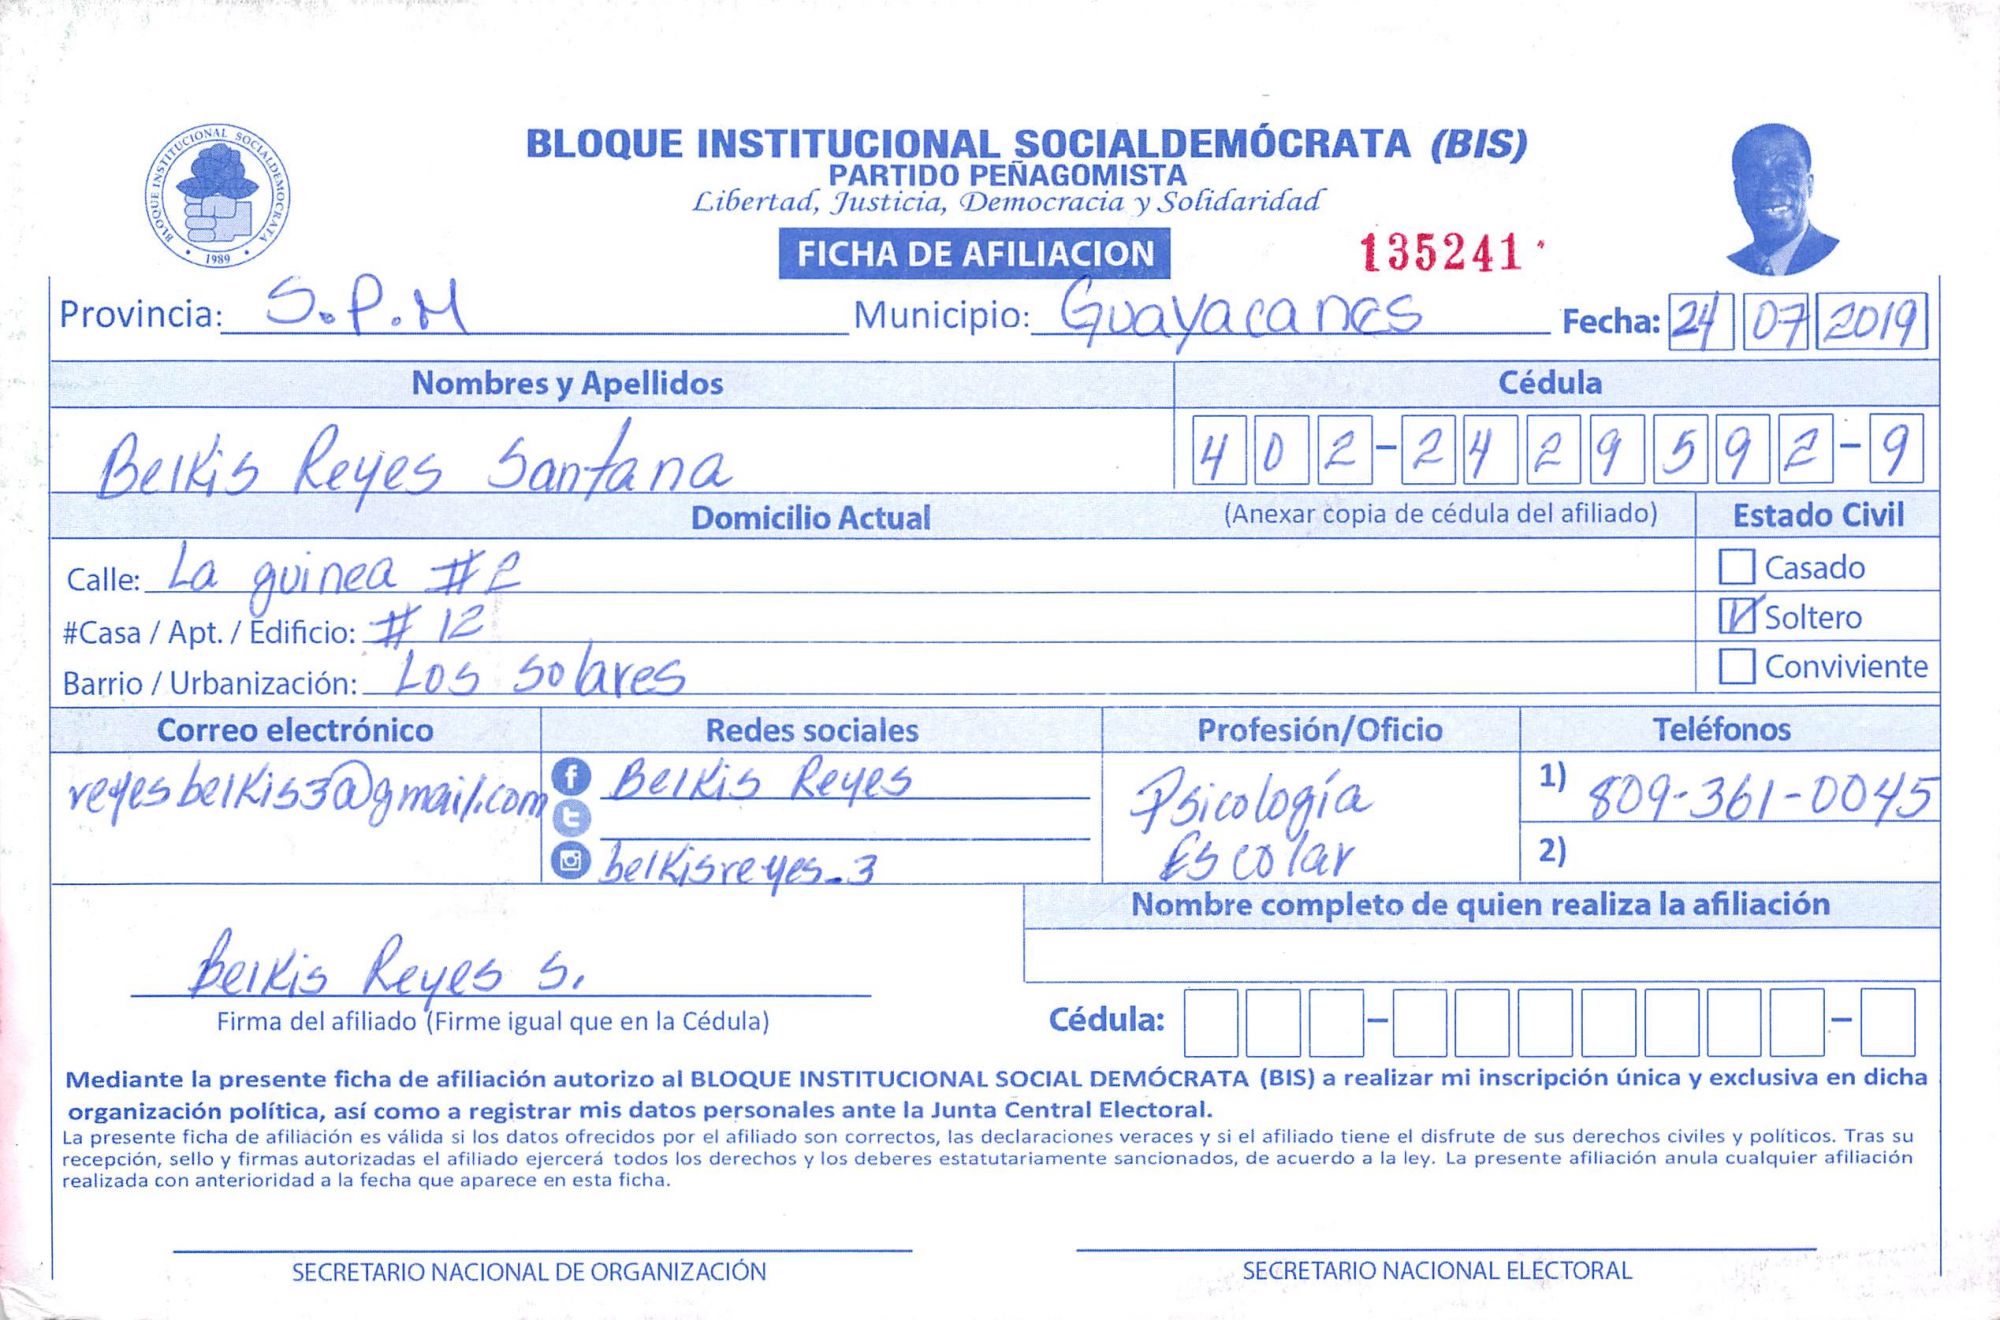 BLOQUE INSTITUCIONAL SOCIALDEMOCRATA
1989
BLOQUE INSTITUCIONAL SOCIALDEMÓCRATA (BIS)
PARTIDO PEÑAGOMISTA
Libertad, Justicia, Democracia y Solidaridad
FICHA DE AFILIACION
135241
Provincia: S.P.M Municipio: Guayacanes Fecha: 24 07 2019
Nombres y Apellidos Cédula
Belkis Reyes Santana 402-2429592-9
Domicilio Actual (Anexar copia de cédula del afiliado) Estado Civil
Calle: La guinea #2 Casado
#Casa / Apt. / Edificio: # 12 Soltero
Barrio / Urbanización: Los solares Conviviente
Correo electrónico Redes sociales Profesión/Oficio Teléfonos
reyesbelkis3@gmail.com Belkis Reyes Psicología 1) 809-361-0045
belkisreyes_3 Escolar 2)
Nombre completo de quien realiza la afiliación
Belkis Reyes S.
Firma del afiliado (Firme igual que en la Cédula) Cédula: - -
Mediante la presente ficha de afiliación autorizo al BLOQUE INSTITUCIONAL SOCIAL DEMÓCRATA (BIS) a realizar mi inscripción única y exclusiva en dicha
organización política, así como a registrar mis datos personales ante la Junta Central Electoral.
La presente ficha de afiliación es válida si los datos ofrecidos por el afiliado son correctos, las declaraciones veraces y si el afiliado tiene el disfrute de sus derechos civiles y políticos. Tras su
recepción, sello y firmas autorizadas el afiliado ejercerá todos los derechos y los deberes estatutariamente sancionados, de acuerdo a la ley. La presente afiliación anula cualquier afiliación
realizada con anterioridad a la fecha que aparece en esta ficha.
SECRETARIO NACIONAL DE ORGANIZACIÓN SECRETARIO NACIONAL ELECTORAL